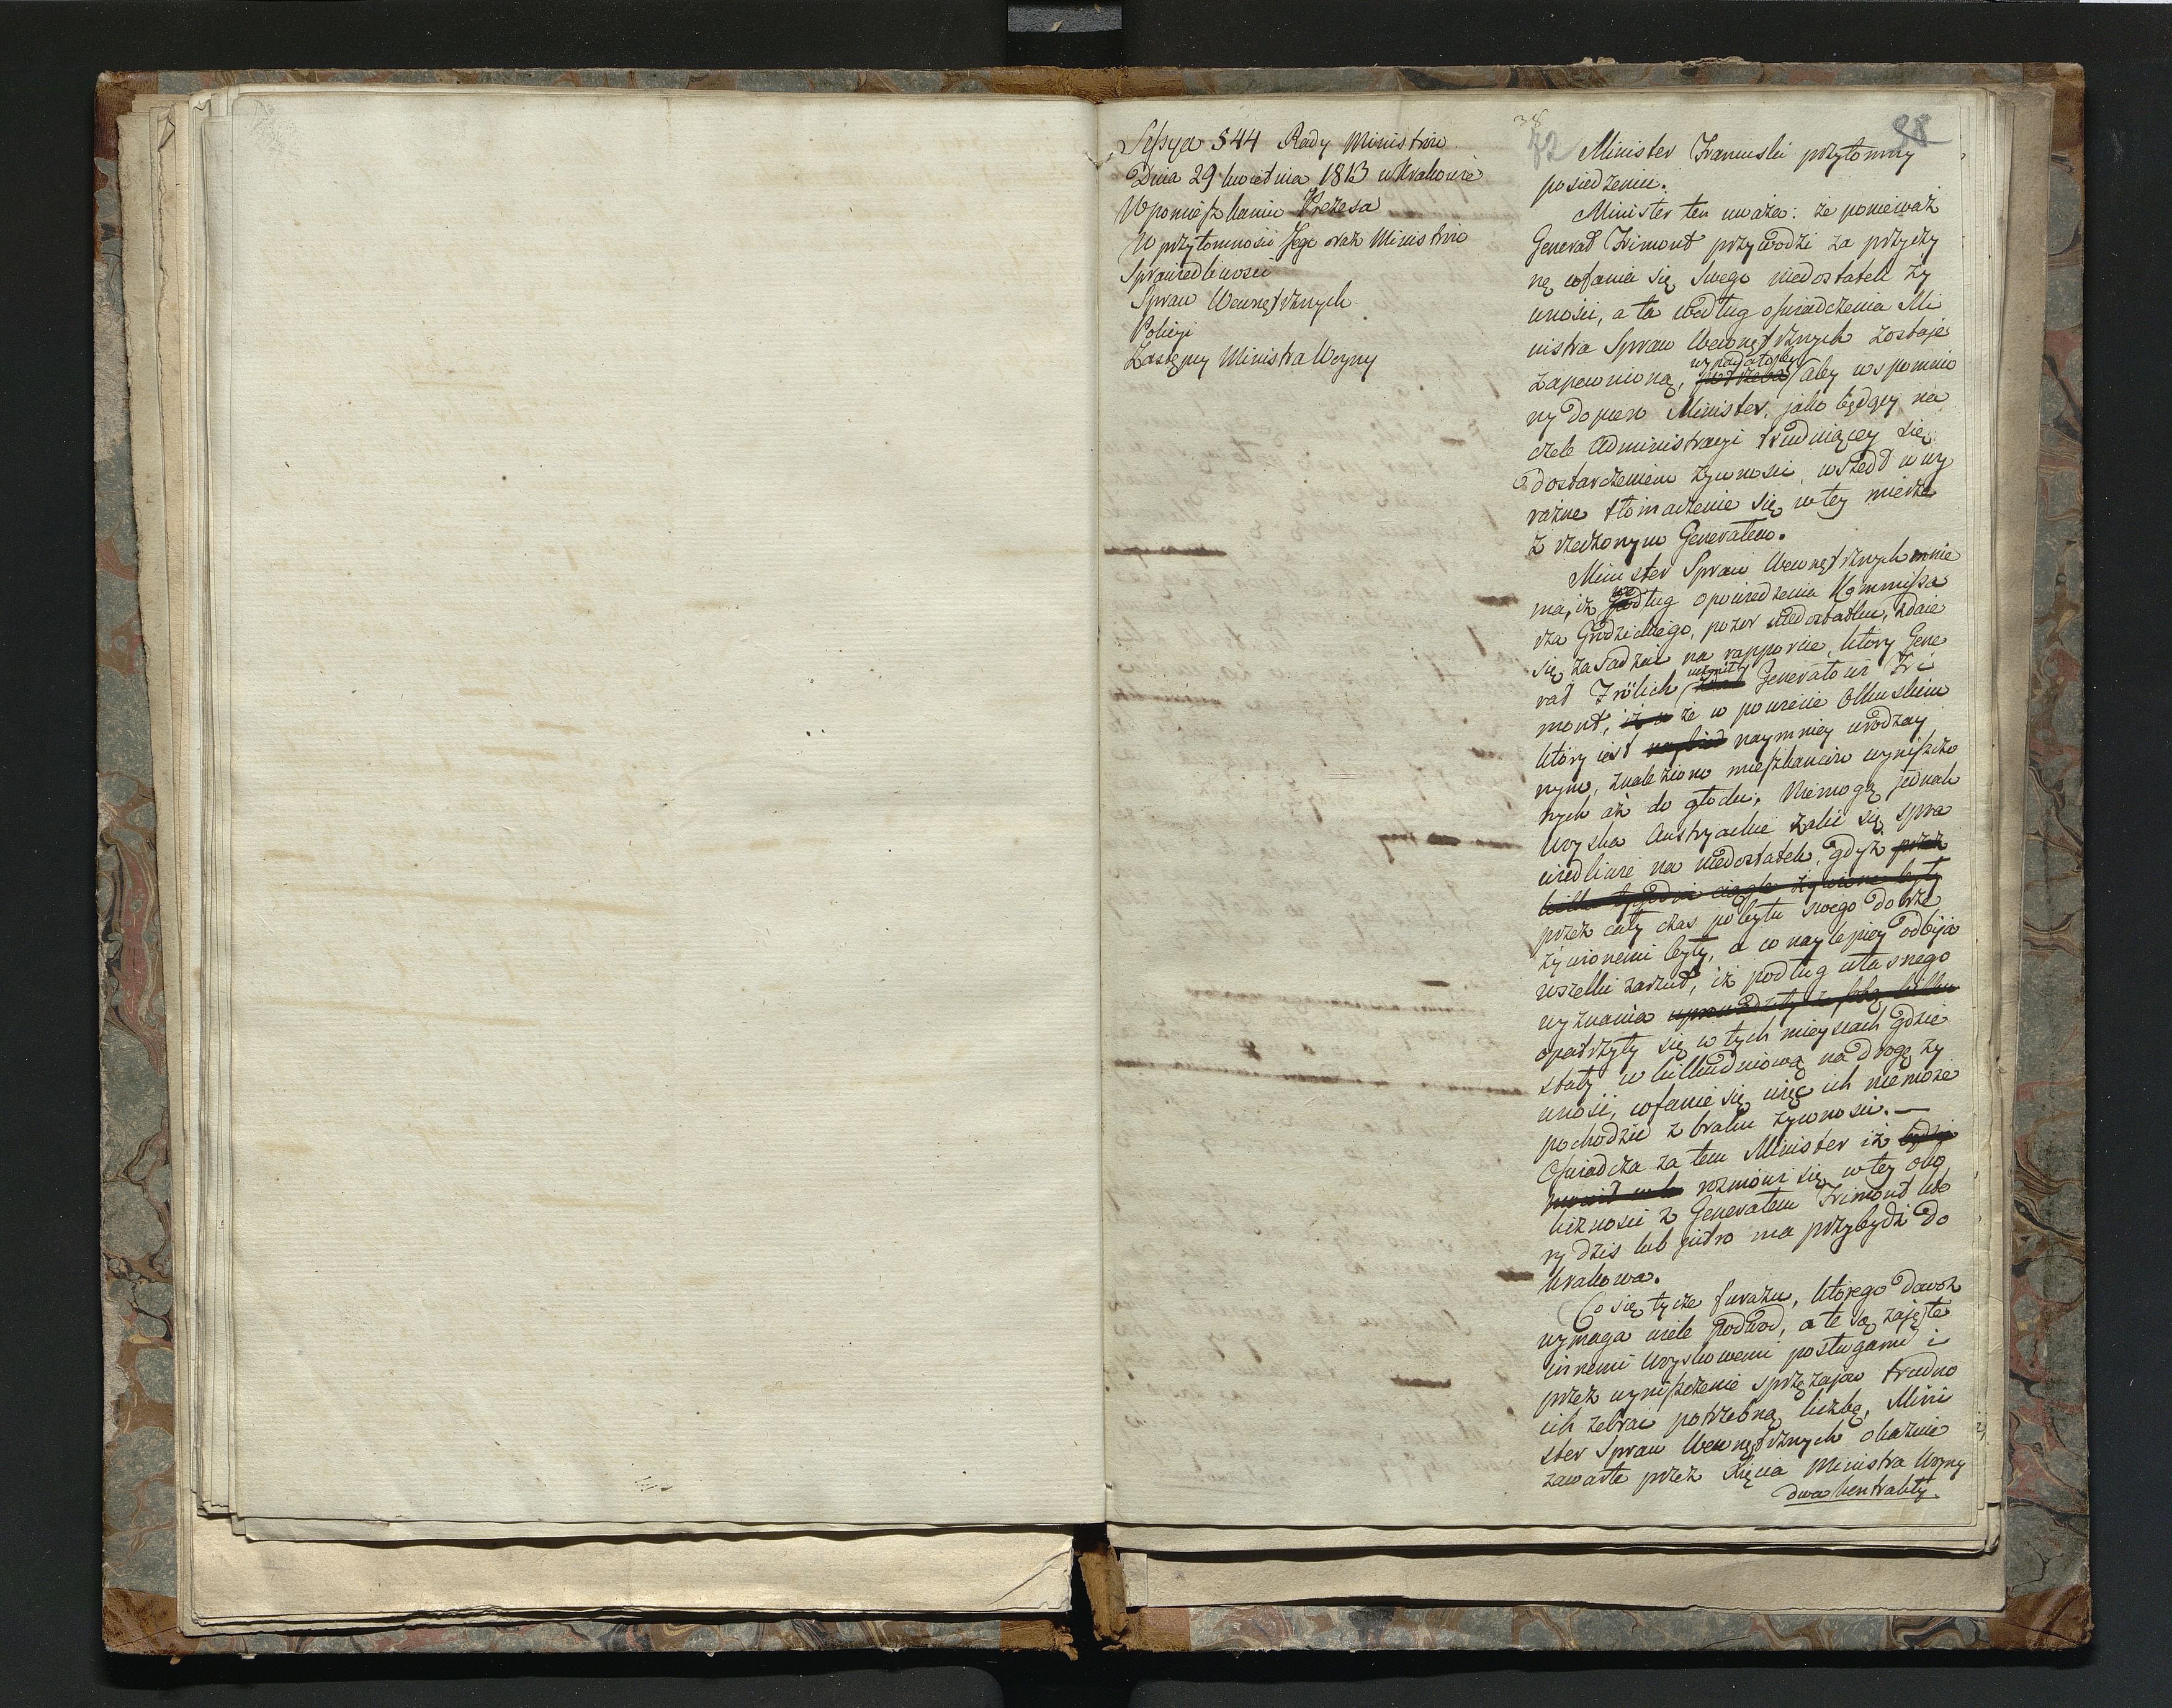 Sessya 544 Rady Ministrów
Dnia 29 kwietnia 1813 w Krakowie
W pomieszkaniu Prezesa
W przytomności Jego oraz Ministrów
Sprawiedliwości
Spraw Wewnętrznych
Policyi
Zastępcy Ministra Woyny
38
72
88
Minister Francuski przytomny
posiedzeniu.
Minister ten uważa: że ponieważ
Generał Frimont przywodzi za przyczy
nę cofania się swego niedostatek ży
wności, a ta według oświadczenia Mi
nistra Spraw Wewnętrznych zostaje
wypadałoby
zapewnioną, potrzeba aby wspomnio
ny dopiero Minister, jako będący na
czele Administracyi trudniącey się
dostarczeniem żywności, wszedł w wy
raźne tłomaczenie się w tey mierze
z rzeczonym Generałem.
Minister Spraw Wewnętrznych mnie
we
ma, iż podług opowiedzenia Kommissa
rza Grodzickiego, pozor niedostatku, zdaie
się zasadzać na rapporcie, który Gene
uczynił
rał Frölich Generałowi Fri
mont, iż w że w powiecie Olkuskim
który iest naymniey urodzay
nym, znaleziono mieszkańców wyniszczo
nych aż do głodu; Niemogą jednak
Woyska Austryackie żalić się spra
wiedliwie na niedostatek, gdyż przez
kilka tygodni ciągle żywione były
przez cały czas pobytu swego dobrze
żywionemi były, a co naylepiey odbija
wszelki zarzut, iż podług własnego
wyznania uprowadziły z sobą kilku
opatrzyły się w tych mieyscach gdzie
stały w kilkudniową na drogę ży
wność, cofanie się więc ich niemoże
pochodzić z braku żywności. —
Oświadcza za tem Minister iż będzie
rozmówi się w tey oko
liczności z Generałem Frimont któ
ry dziś lub jutro ma przybydź do
Krakowa.
Co się tycze furażu, którego dowóz
wymaga wiele podwód, a te są zajęte
innemi Woyskowemi posługami i
przez wyniszczenie sprzężajów trudno
ich zebrać potrzebną liczbę, Mini
ster Spraw Wewnętrznych okazuie
zawarte przez Xięcia Ministra Woyny
dwa kontrakty